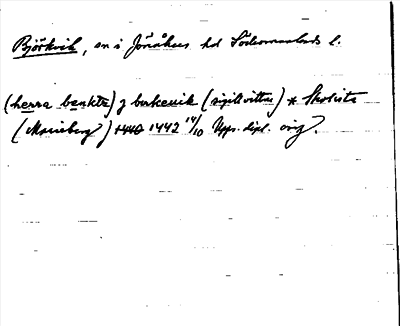 Björkvik, sn i Jönåkers hd Södermanlands l.
(herra benktz) j birkeuik (sigillvittne) * Skokista
(Marieberg) 1440 1442 14/10 Upps. dipl. orig.